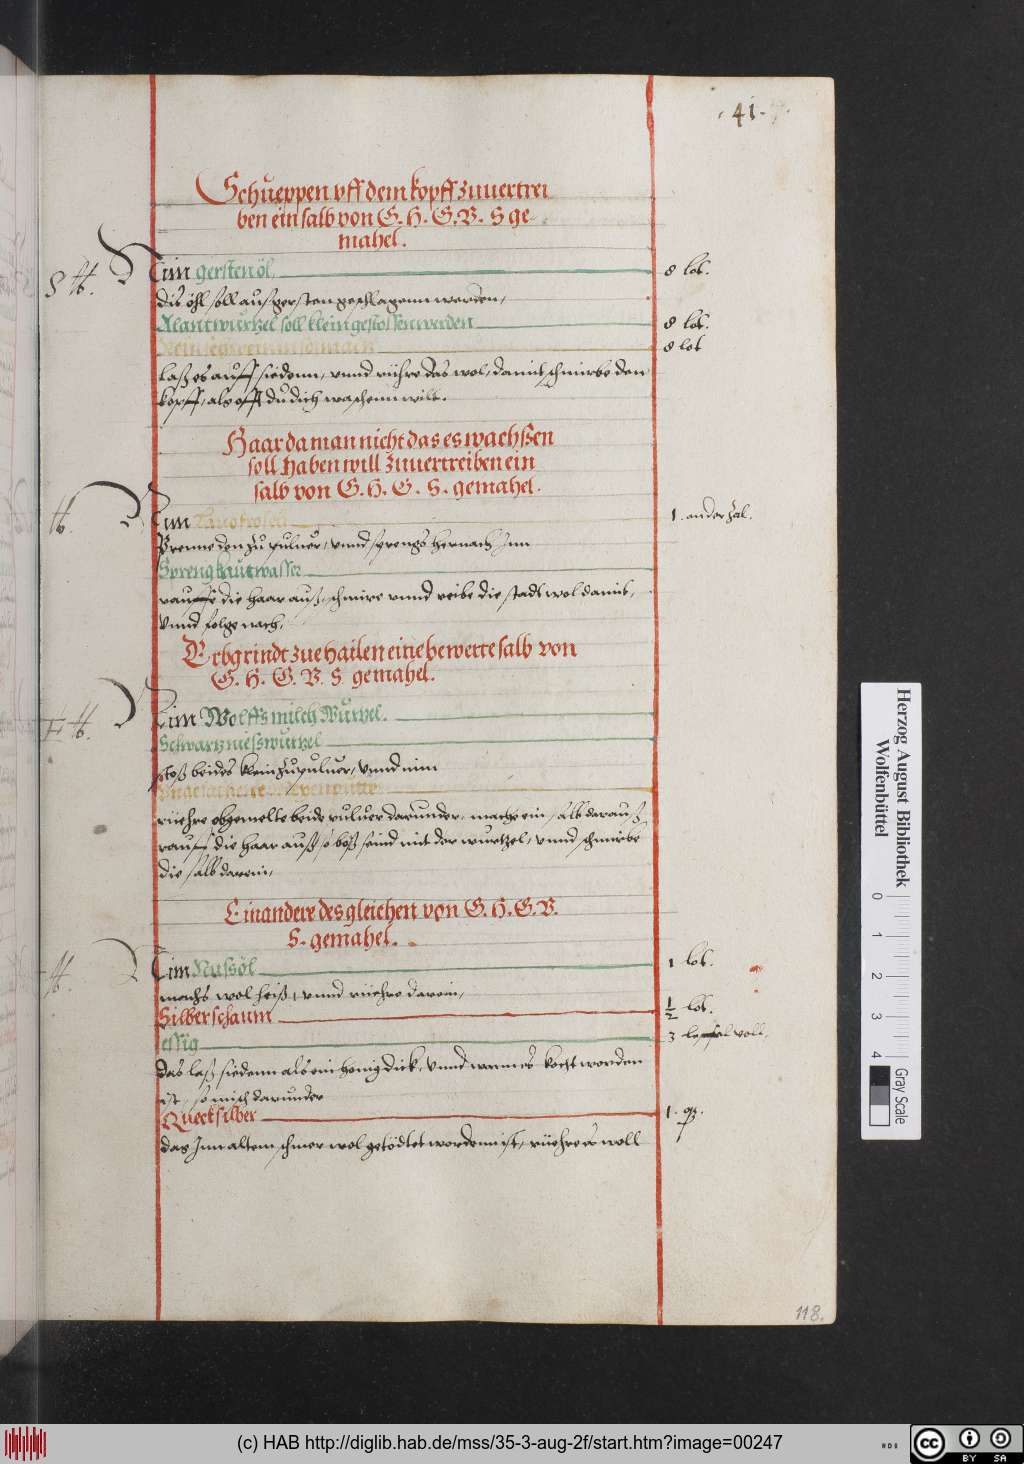 41.
Schueppen vff dem kopff zuuertrei
ben ein salb von G. H. G. V. S ge-
mahel.
Nim gersten öl 8 lot.
dis öhl soll aus gersten geschlagenn werden,
Alantwurtzel soll klein gestossen werden 8 lot.
8 lot
Laß es auff siedenn, vnnd rühre das wol, damit schmirbe den
kopff, als offt du dich waschenn wilt.
Haar da man nicht das es wachßen
soll haben will zuuertreiben ein
salb von G. H. G. S. gemahel.
Nim 1. ander zal.
Brenne den zu puluer, vnnd sprengs hernach Inn
Sprengkrutwasser
rauffe die haar auß, schmire vnnd reibe die stadt wol damit,
Vnnd folge nach,
Erbgrindt zue hailen eine bewerte salb von
G. H. G. V. S gemahel.
Nim Wolffsmilch Wurtzel.
Schwartz niesswurtzel
stoß beides klein zu puluer, vnnd nim
rüehre obgemelte beide puluer darunder, mache ein salb darauß
rauff die haar auß so böß seind mit der wurtzel, vnnd schmirbe
die salb darein,
Ein andere desgleichen von G. H. G. V.
S. gemahel.
Nim Nussöl 1 lot.
machs wol heiß, vnnd rüehre darein,
Silberschaum ½ lot.
essig 3 leffel voll.
das laß siedenn als ein honig dick, Vnnd wann es kocht worden
ist, so misch darunder
Quecksilber 1. q.
das Inn altem schmer wol getödtet wordenn ist, rüehre es woll
118.
Herzog August Bibliothek
Wolfenbüttel
0 1 2 3 4
Gray Scale
(c) HAB http://diglib.hab.de/mss/35-3-aug-2f/start.htm?image=00247
cc BY SA